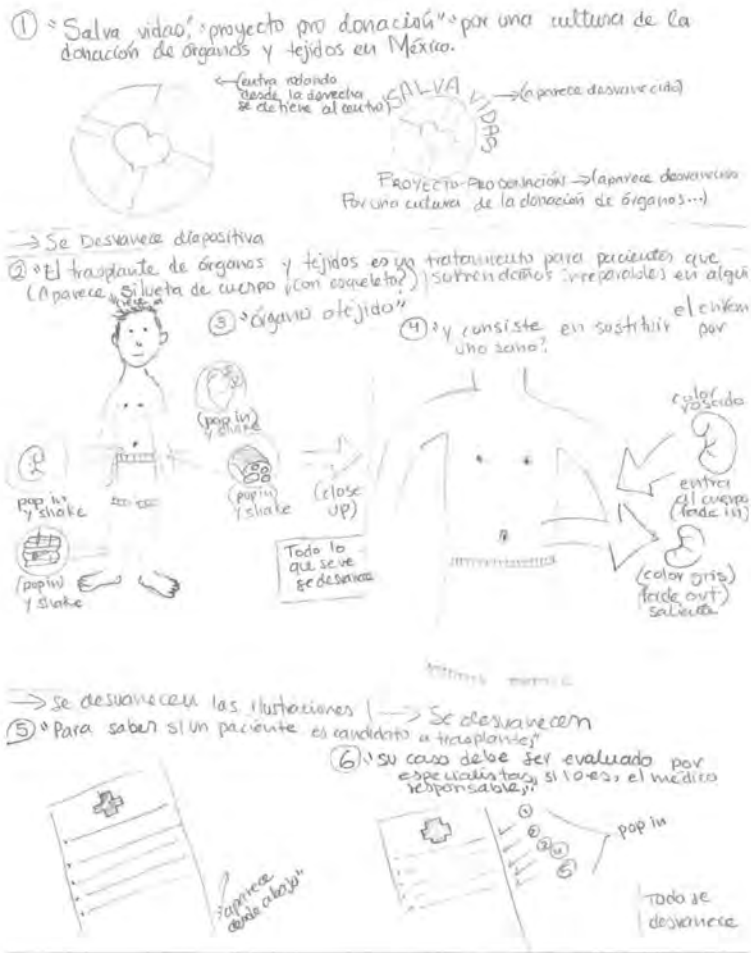 ① "Salva vidas," "proyecto pro donación" "por una cultura de la
donación de órganos y tejidos en México.
(entra rodando
desde la derecha
se detiene al centro)
SALVA VIDAS
(aparece desvanecido)
PROYECTO PRO DONACIÓN → (aparece desvanecido
Por una cultura de la donación de órganos...)
→ Se Desvanece diapositiva
② "El trasplante de órganos y tejidos es un tratamiento para pacientes que
(Aparece silueta de cuerpo (con esqueleto?)) sufren daños irreparables en algún
③ "órgano o tejido"
④ "y consiste en sustituir el enfermo
por
uno sano".
(pop in)
y shake
pop in
y shake
(pop in)
y shake
(pop in)
y shake
(close
up)
Todo lo
que se ve
se desvanece
color
rosado
entra
al cuerpo
(fade in)
(color gris)
(fade out)
saliente
→ Se desvanecen las ilustraciones
→ Se desvanecen
⑤ "Para saber si un paciente es candidato a trasplante,"
⑥ "su caso debe ser evaluado por
especialistas, si lo es, el médico
responsable,"
"aparece
desde abajo"
①
②
③
④
⑤
pop in
Todo se
desvanece